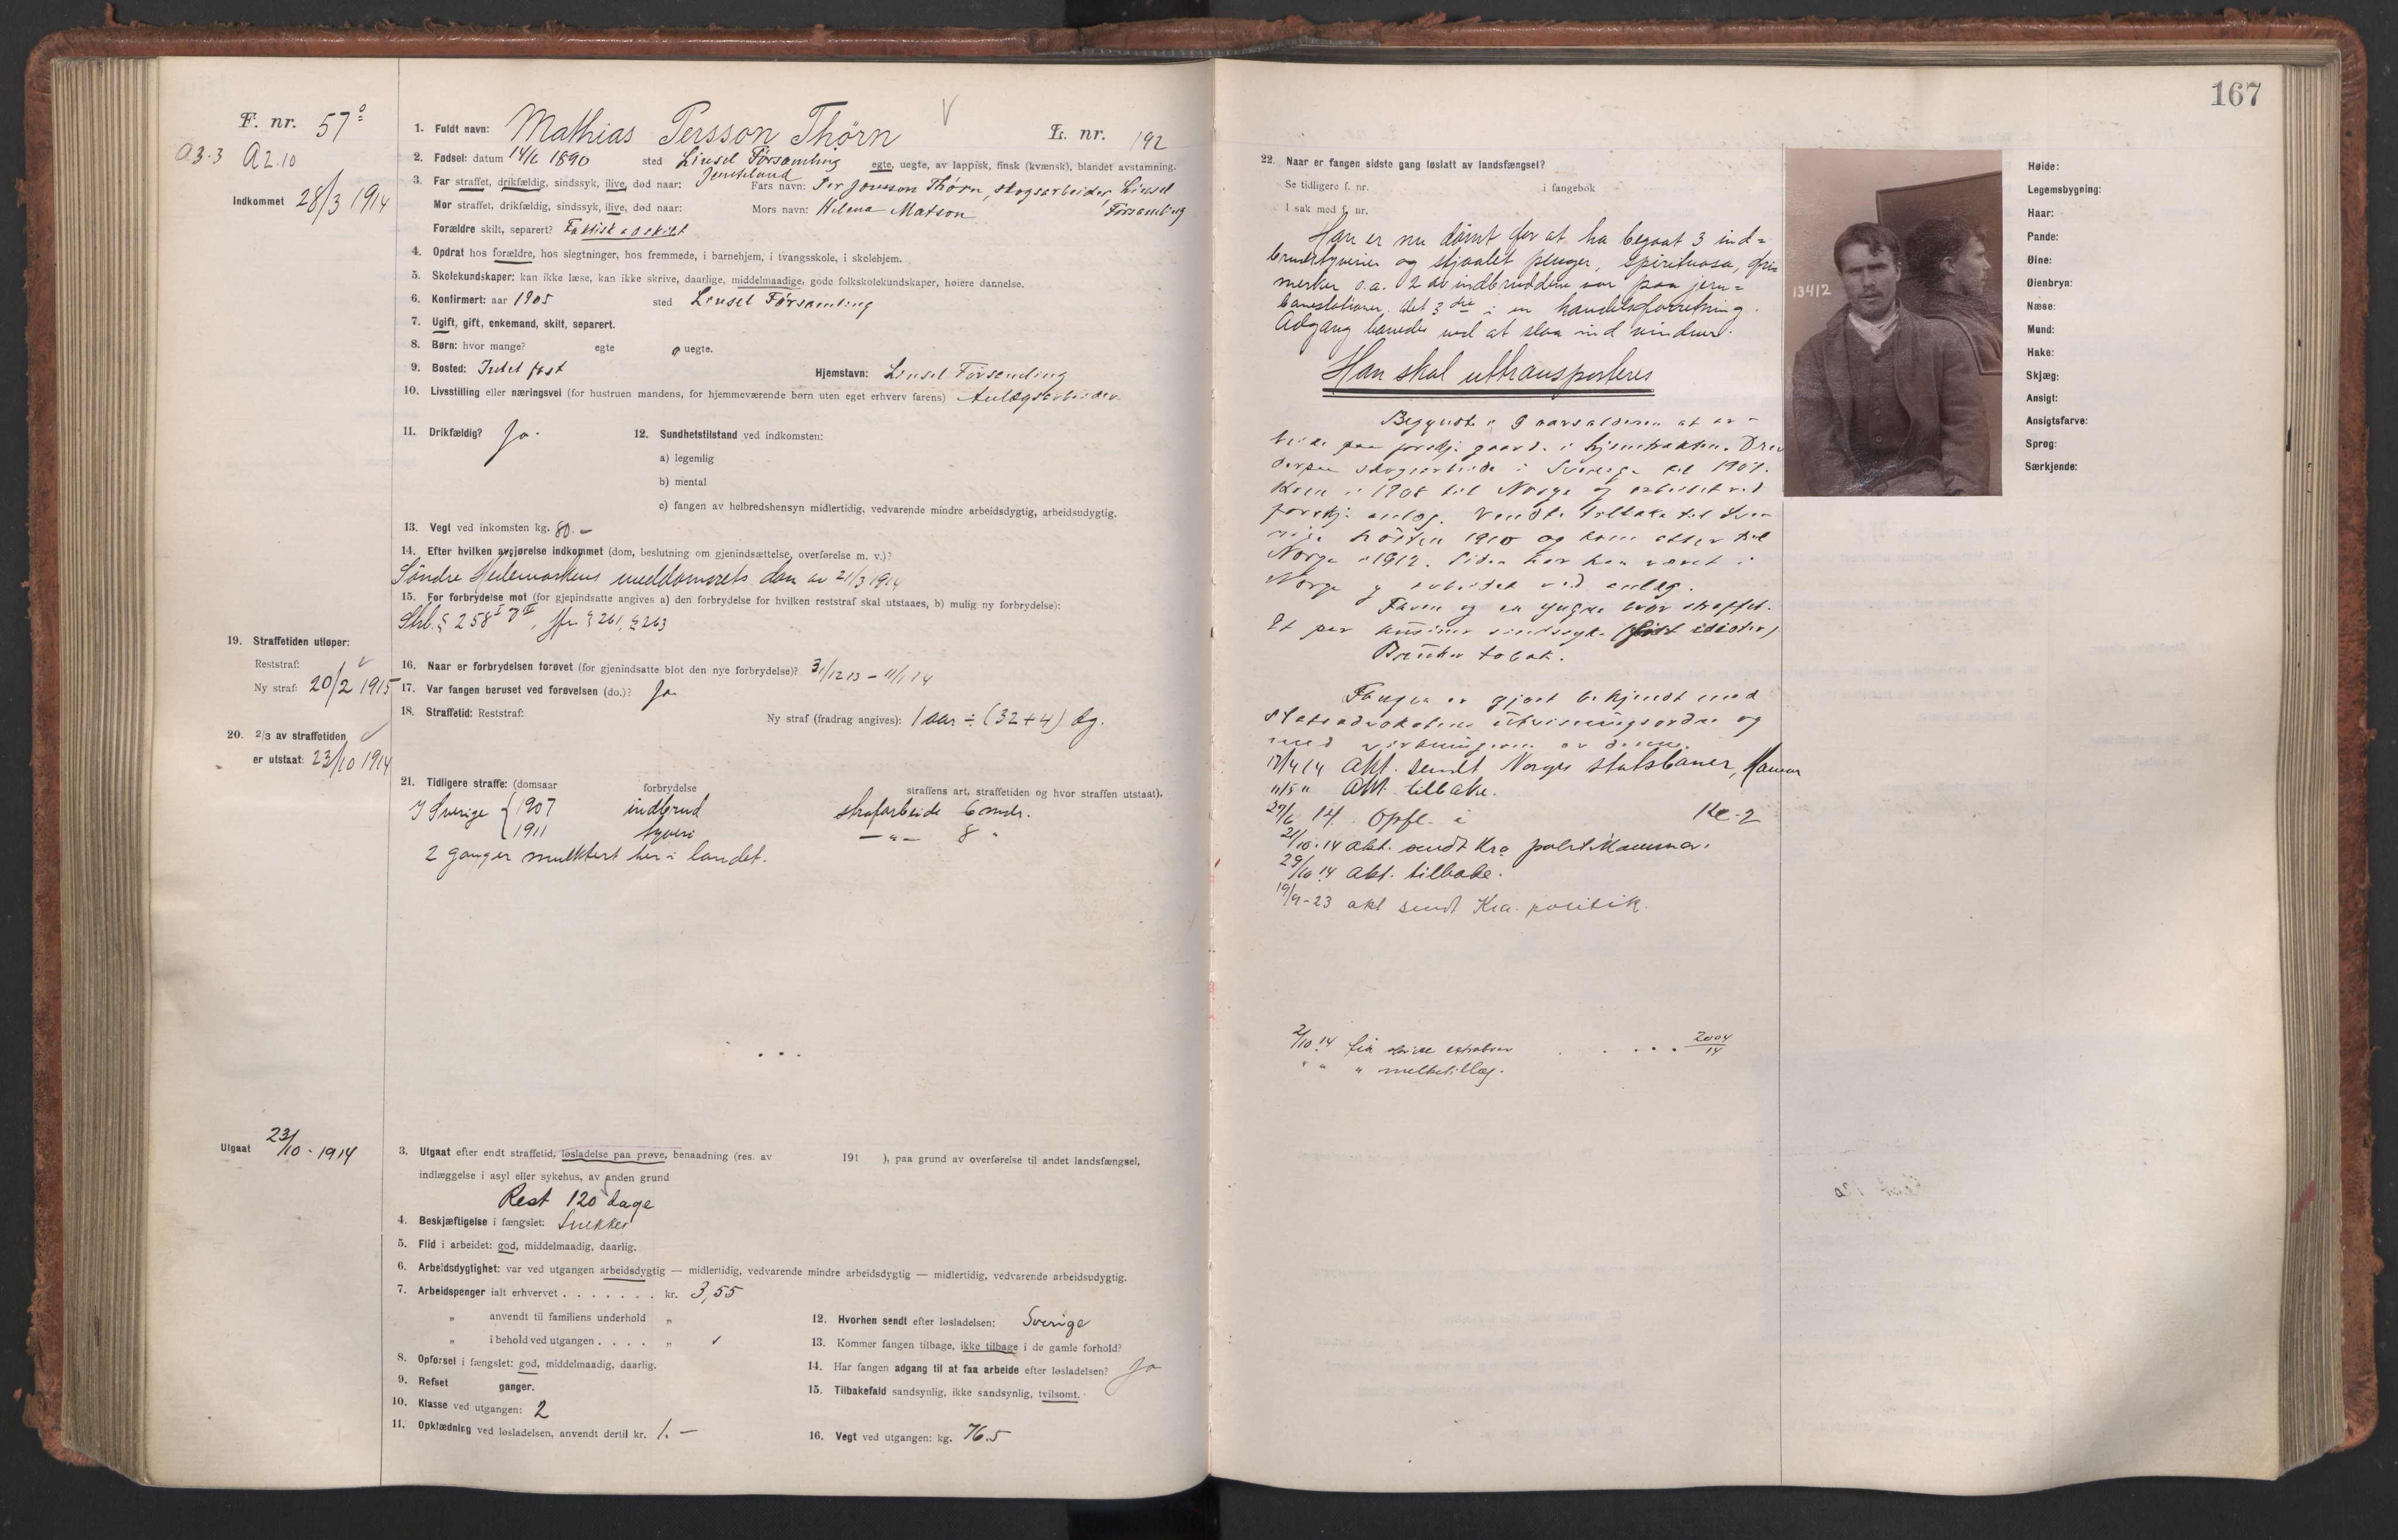 F. nr. 57
A3.3 A2.10
Indkommet 28/3 1914
1. Fuldt navn: Mathias Persson Thørn L. nr. 192
2. Fødsel: datum 14/6 1890 sted Linsel Församling egte, uegte, av lappisk, finsk (kvænsk), blandet avstamning.
Jemteland
3. Far straffet, drikfældig, sindssyk, ilive, død naar: Fars navn: Per Jonsson Thørn, skogsarbeider, Linsel
Församling
Mor straffet, drikfældig, sindssyk, ilive, død naar: Mors navn: Helena Matson
Forældre skilt, separert? Faktisk adskilt
4. Opdrat hos forældre, hos slegtninger, hos fremmede, i barnehjem, i tvangsskole, i skolehjem.
5. Skolekundskaper: kan ikke læse, kan ikke skrive, daarlige, middelmaadige, gode folkskolekundskaper, høiere dannelse.
6. Konfirmert: aar 1905 sted Linsel Församling
7. Ugift, gift, enkemand, skilt, separert.
8. Børn: hvor mange? egte 0 uegte.
9. Bosted: Intet fast Hjemstavn: Linsel Församling
10. Livsstilling eller næringsvei (for hustruen mandens, for hjemmeværende børn uten eget erhverv farens) Anlægsarbeider.
11. Drikfældig? Ja. 12. Sundhetstilstand ved indkomsten:
a) legemlig
b) mental
c) fangen av helbredshensyn midlertidig, vedvarende mindre arbeidsdygtig, arbeidsudygtig.
13. Vegt ved inkomsten kg. 80.-
14. Efter hvilken avgjørelse indkommet (dom, beslutning om gjenindsættelse, overførelse m. v.)?
Søndre Hedemarkens meddomsrets dom av 21/3 1914
15. For forbrydelse mot (for gjenindsatte angives a) den forbrydelse for hvilken reststraf skal utstaaes, b) mulig ny forbrydelse):
Strl. § 258 I & II, jfr. § 261, § 263
19. Straffetiden utløper:
Reststraf:
Ny straf: 20/2 1915
16. Naar er forbrydelsen forøvet (for gjenindsatte blot den nye forbrydelse)? 31/12 13 – 11/1 14
17. Var fangen beruset ved forøvelsen (do.)? Ja
18. Straffetid: Reststraf: Ny straf (fradrag angives): 1 aar ÷ (32+4) dg.
20. 2/3 av straffetiden
er utstaat: 23/10 1914
21. Tidligere straffe: (domsaar forbrydelse straffens art, straffetiden og hvor straffen utstaat).
I Sverige { 1907 indbrud strafarbeide 6 mndr.
1911 tyveri —"— 8 "
2 ganger mulktert her i landet.
Utgaat 23/10 - 1914
3. Utgaat efter endt straffetid, løsladelse paa prøve, benaadning (res. av 191 ), paa grund av overførelse til andet landsfængsel,
indlæggelse i asyl eller sykehus, av anden grund
Rest 120 dage
4. Beskjæftigelse i fængslet: Snekker
5. Flid i arbeidet: god, middelmaadig, daarlig.
6. Arbeidsdygtighet: var ved utgangen arbeidsdygtig — midlertidig, vedvarende mindre arbeidsdygtig — midlertidig, vedvarende arbeidsudygtig.
7. Arbeidspenger ialt erhvervet . . . . . . . kr. 3,55
" anvendt til familiens underhold "
" i behold ved utgangen . . . . "
8. Opførsel i fængslet: god, middelmaadig, daarlig.
9. Refset ganger.
10. Klasse ved utgangen: 2
11. Opklædning ved løsladelsen, anvendt dertil kr. 1.-
12. Hvorhen sendt efter løsladelsen: Sverige
13. Kommer fangen tilbage, ikke tilbage i de gamle forhold?
14. Har fangen adgang til at faa arbeide efter løsladelsen? Ja
15. Tilbakefald sandsynlig, ikke sandsynlig, tvilsomt.
16. Vegt ved utgangen: kg. 76.5
167
22. Naar er fangen sidste gang løslatt av landsfængsel?
Se tidligere f. nr. i fangebok
I sak med f. nr.
Han er nu dømt for at ha begaat 3 ind=
brudstyverier og stjaalet penger, spirituosa, fri
merker o.a. 2 av indbruddene var paa jern=
banestationer, det 3die i en handelsforretning.
Adgang banedes ved at slaa ind vinduer.
Han skal uttransporteres
Begyndte i 9 aarsalderen at ar-
beide paa forskj. gaarde i hjemtrakten. Drev
derpaa skogsarbeide i Sverige til 1907.
Kom i 1908 til Norge og arbeidet ved
forskj. anlæg. Vendte tilbake til Sve-
rige høsten 1910 og kom atter til
Norge i 1912. Siden har han været i
Norge og arbeidet ved anlæg.
Faren og en yngre bror straffet.
Et par kusiner sindssyke (født idioter)
Bruker tobak.
Fangen er gjort bekjendt med
statsadvokatens utvisningsordre og
med virkningerne av denne.
17/4 14 Akt. sendt Norges statsbaner, Hamar
11/5 " Akt. tilbake.
27/6 14. Opfl. i Kl. 2
21/10.14 akt. sendt Kra politikammer.
29/10 14 akt. tilbake.
19/9-23 akt sendt Kra. politik.
2/10 14 . . . . 2004/14
" " " melketillæg.
13412
Høide:
Legemsbygning:
Haar:
Pande:
Øine:
Øienbryn:
Næse:
Mund:
Hake:
Skjæg:
Ansigt:
Ansigtsfarve:
Sprog:
Særkjende: